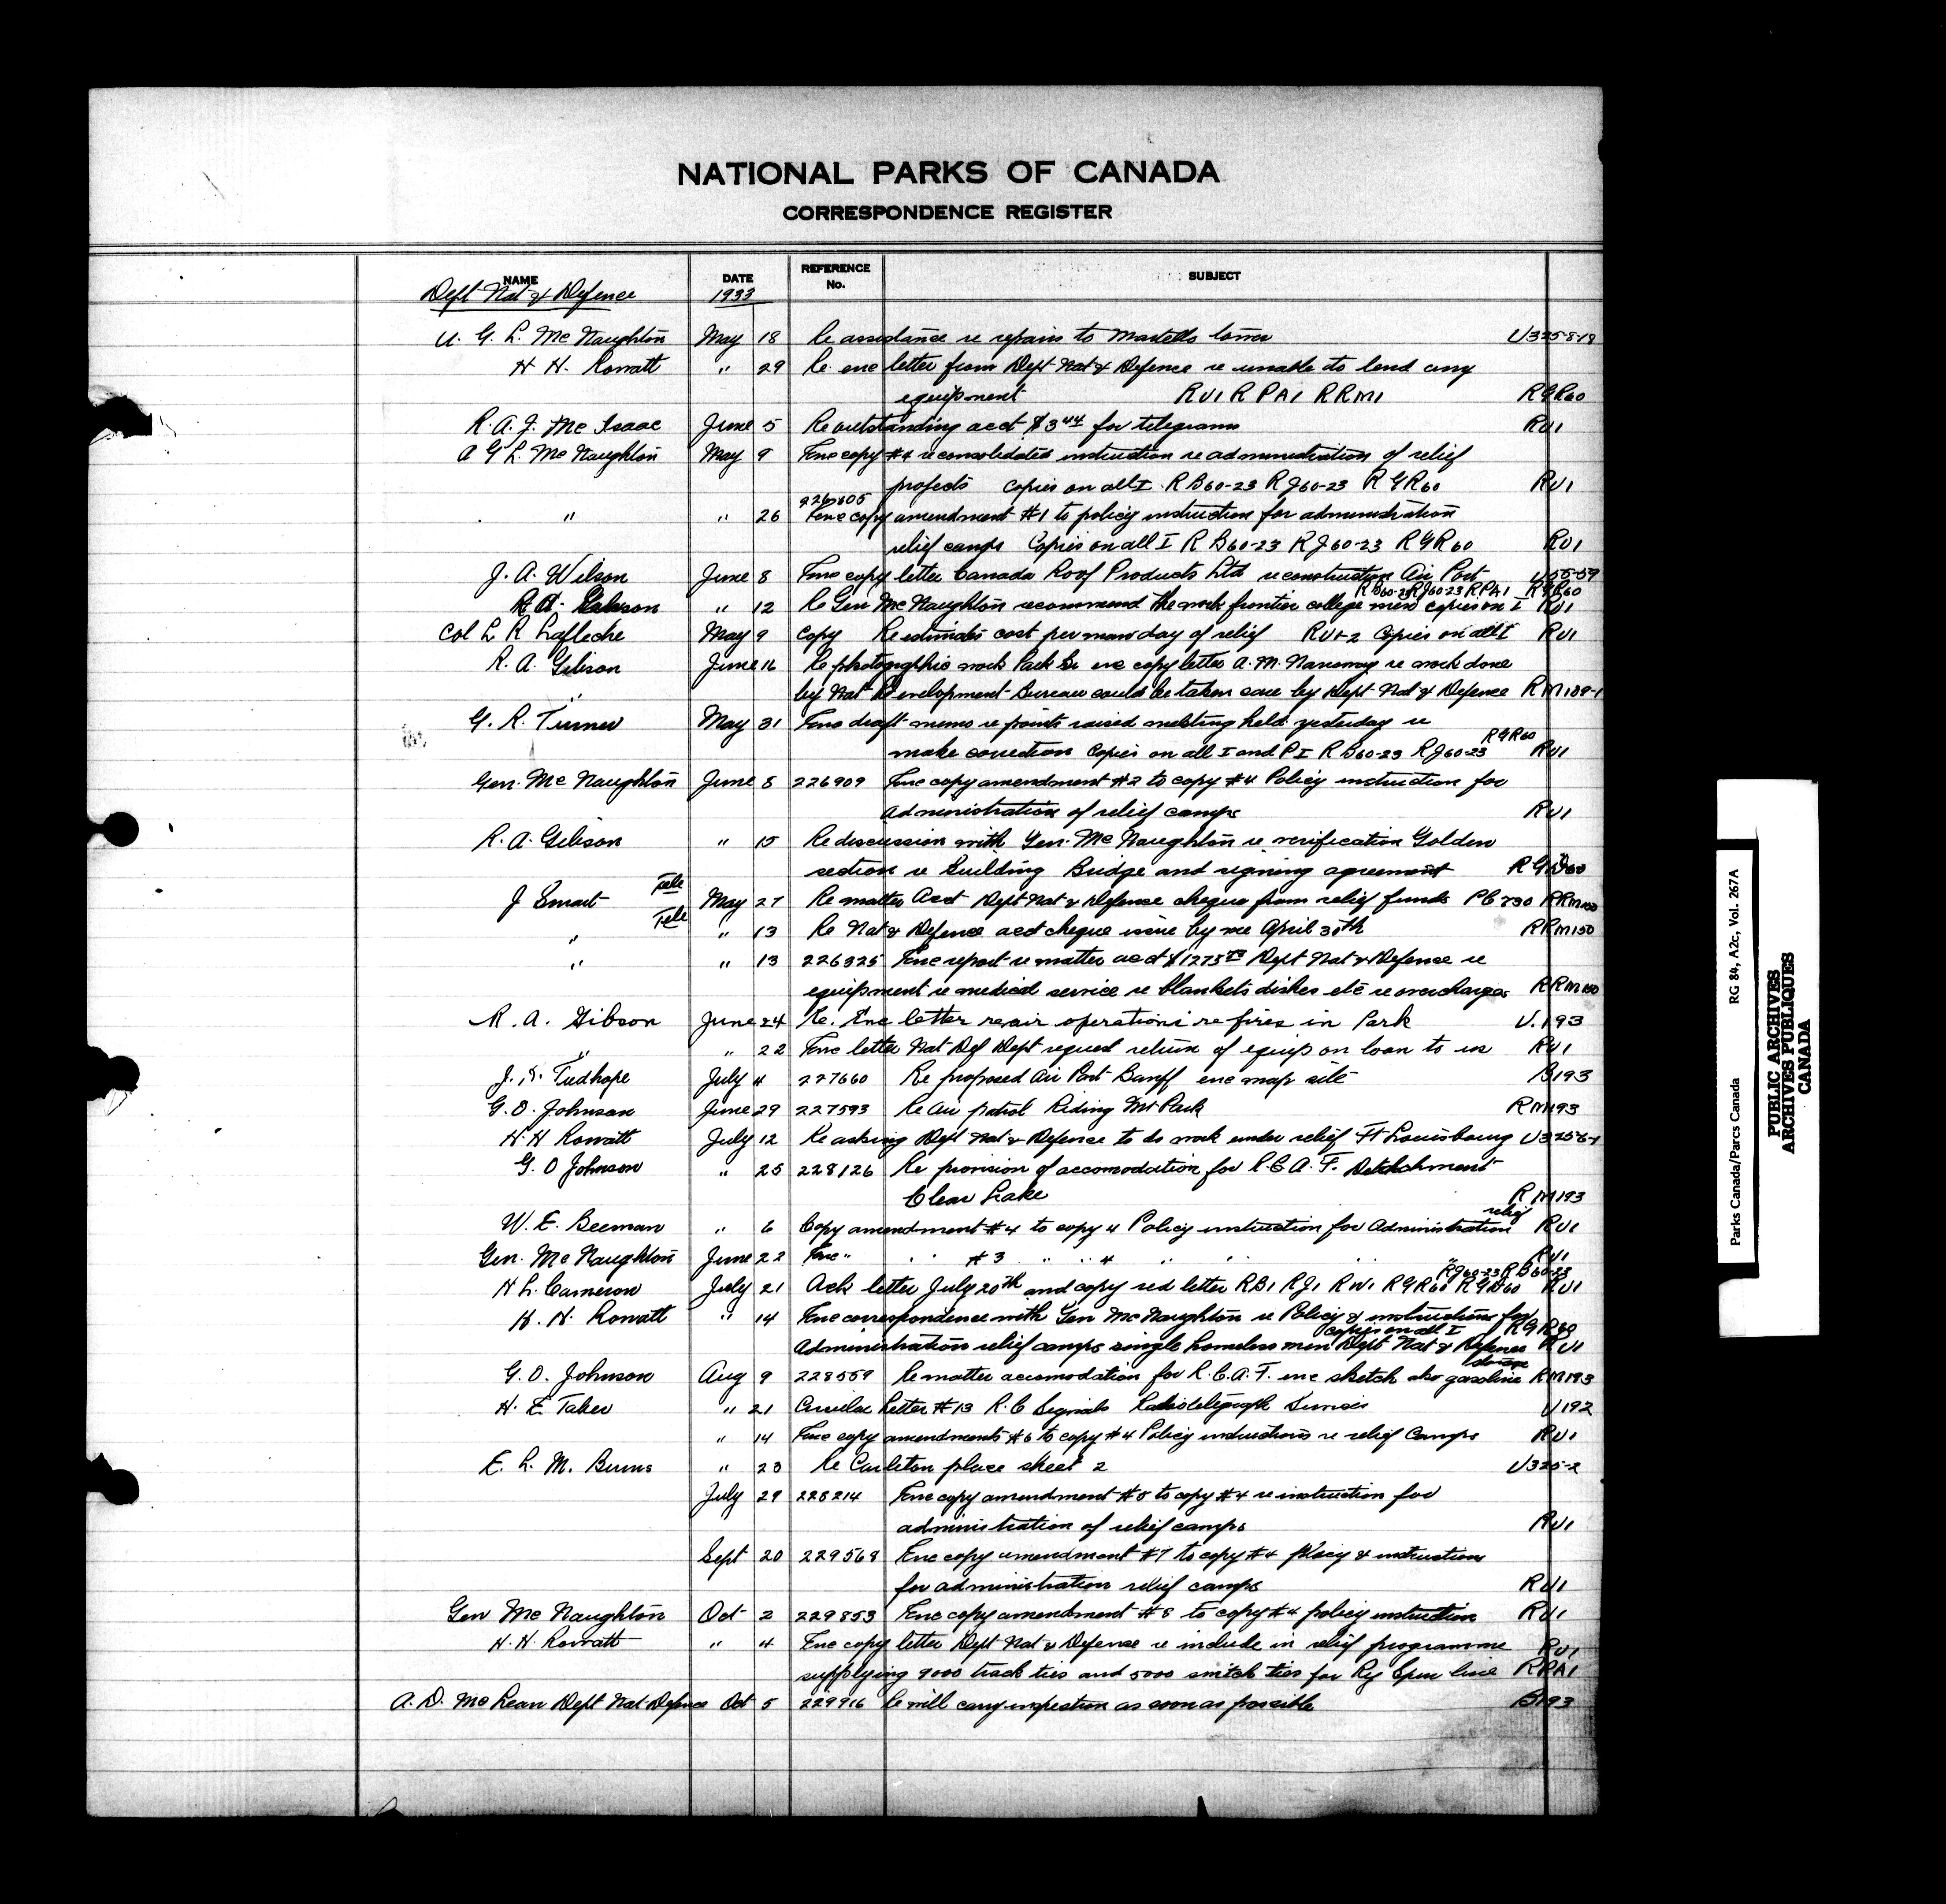 NATIONAL PARKS OF CANADA
CORRESPONDENCE REGISTER
NAME DATE REFERENCE No. SUBJECT
Dept Nat'l Defence 1933
A. G. L. McNaughton May 18 Re assistance re repairs to Martello tower U325-8-18
H H. Rowatt " 29 Re enc letter from Dept Nat'l Defence re unable to lend any
equipment RU1 RPA1 RRM1 RGR60
R. A. J. McIsaac June 5 Re outstanding acct $3 44 for telegrams RU1
A G L. McNaughton May 9 Enc copy #4 re consolidated instruction re administration of relief
projects copies on all I RB60-23 RJ60-23 RGR60 RU1
" " 26 Enc copy amendment #1 to policy instruction for administration
relief camps Copies on all I RB60-23 RJ60-23 RGR60 RU1
J. A. Wilson June 8 Enc copy letter Canada Roof Products Ltd re construction Air Port
RB60-23 RJ60-23 RPA1 RGR60
R. A. Gibson " 12 Re Gen McNaughton recommend the work frontier college men copies on I RU1
Col L R Lafleche May 9 Copy Re estimates cost per man day of relief RU1-2 Copies on all I RU1
R. A. Gibson June 16 Re photographic work Park enc copy letter A. M. Narraway re work done
" by Nat Development Bureau could be taken care by Dept Nat'l Defence RM189-1
G. R. Turner May 31 Enc draft memo re points raised meeting held yesterday re
make correction Copies on all I and PI RB60-23 RJ60-23 RGR60 RU1
Gen. McNaughton June 8 226909 Enc copy amendment #2 to copy #4 Policy instruction for
administration of relief camps RU1
R. A. Gibson " 15 Re discussion with Gen. McNaughton re verification Golden
section re building Bridge and signing agreement
J Smart Tele May 27 Re matter Acct Dept Nat'l Defence cheque from relief funds PC 730 RRM150
" Tele " 13 Re Nat'l Defence acct cheque issue by me April 30th RRM150
" " 13 226325 Enc report re matter acct Dept Nat'l Defence re
equipment re medical service re blankets dishes etc re overcharges RRM150
R. A. Gibson June 24 Re. Enc letter re air operations re fires in Park U.193
" " 22 Enc letter Nat Def Dept request return of equip on loan to us RU1
J. S. Tudhope July 4 227660 Re proposed Air Port Banff enc map site B193
G. O. Johnson June 29 227593 Re Air patrol Riding Mt Park RM193
H. H Rowatt July 12 Re asking Dept Nat'l Defence to do work under relief Ft Louisbourg
G. O Johnson " 25 228126 Re provision of accomodation for R.C.A.F. Detachment
Clear Lake RM193
W. E. Beeman " 6 Copy amendment #4 to copy 4 Policy instruction for Administration relief RU1
Gen. McNaughton June 22 Enc " " #3 " " 4 " " " RU1
RJ60-23 RB60-23
H L. Cameron July 21 Ack letter July 20th and copy red letter RB1 RJ1 RW1 RGR60 RGD60 RU1
H. H. Rowatt " 14 Enc correspondence with Gen McNaughton re Policy & instructions for
copies on all I RGR60
administration relief camps single homeless men Dept Nat'l Defence RU1
G. O. Johnson Aug 9 228559 Re matter accomodation for R.C.A.F. enc sketch also gasoline RM193
H. E. Taber " 21 Circular Letter #13 R.C Signals Radiotelegraph Services U192
" 14 Enc copy amendments #6 to copy #4 Policy instructions re relief Camps RU1
E. L. M. Burns " 23 Re Carleton place sheet 2 U325-2
July 29 228214 Enc copy amendment #5 to copy #4 re instruction for
administration of relief camps RU1
Sept 20 229568 Enc copy amendment #7 to copy #4 policy & instruction
for administration relief camps RU1
Gen McNaughton Oct 2 229853 Enc copy amendment #8 to copy #4 policy instruction RU1
H. H. Rowatt " 4 Enc copy letter Dept Nat'l Defence re include in relief programme RU1
supplying 9000 track ties and 5000 switch ties for Ry Spur line RPA1
A. D. McLean Dept Nat Defence Oct 5 229916 Re will carry inspection as soon as possible B193
Parks Canada/Parcs Canada RG 84, A2c, Vol. 267A
PUBLIC ARCHIVES
ARCHIVES PUBLIQUES
CANADA